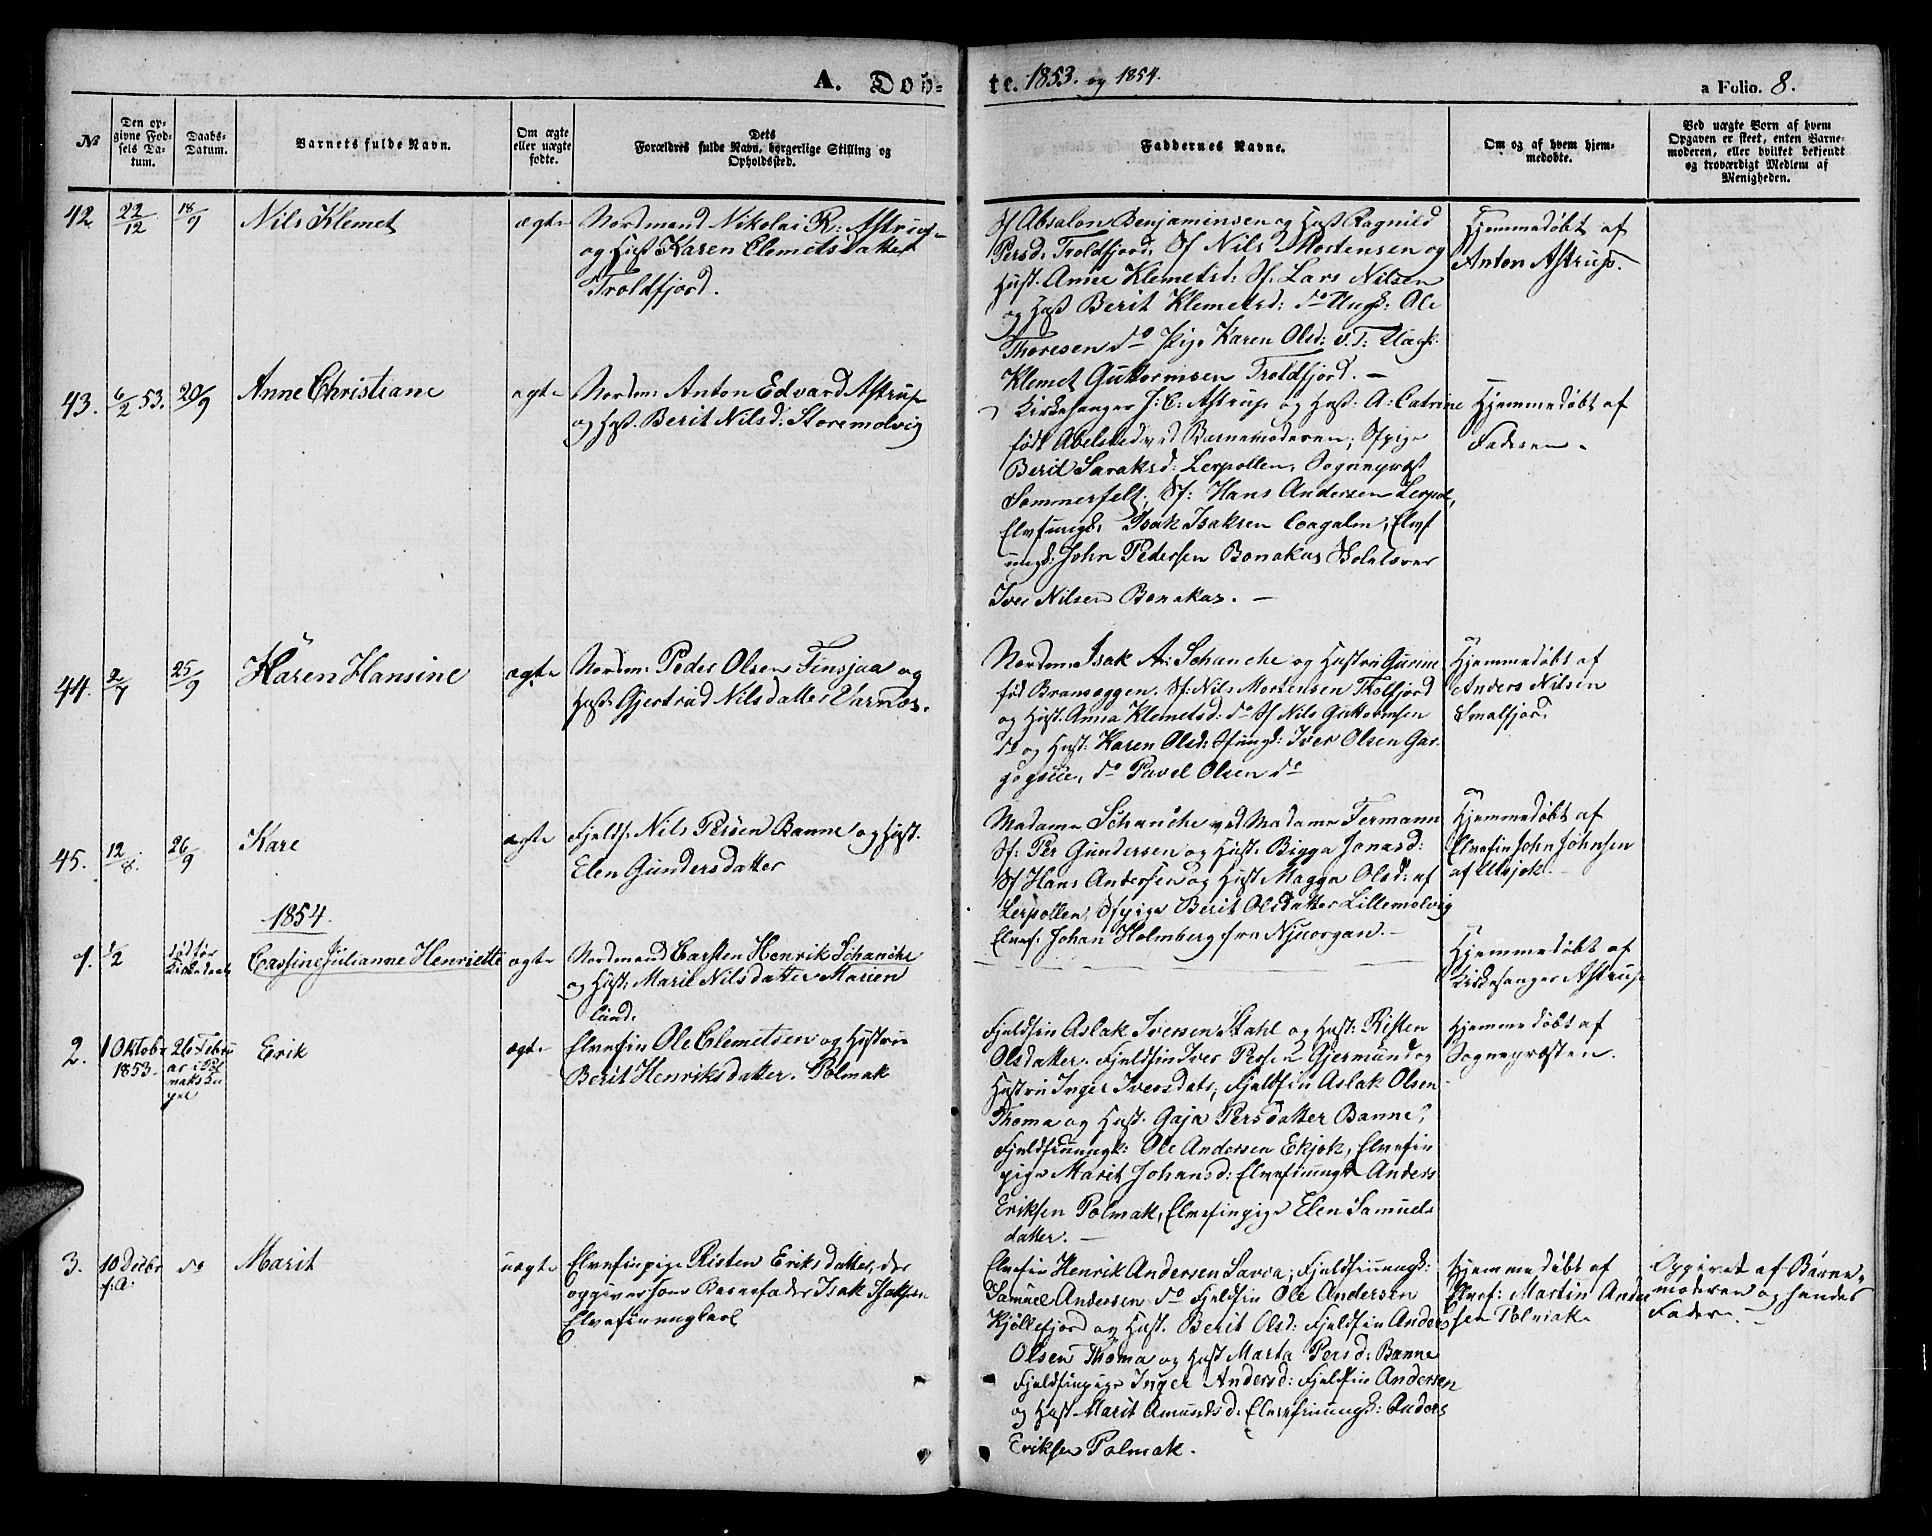 A. Döb-
te. 1853. og 1854.
a Folio. 8.
№
Den op-
givne Fød-
sels Da-
tum.
Daabs-
Datum.
Barnets fulde Navn.
Om ægte
eller uægte
fødte.
Dets
Forældres fulde Navn, borgerlige Stilling og
Opholdssted.
Faddernes Navne.
Om og af hvem hjem-
medøbte.
Ved uægte Born af hvem
Opgaven er skeet, enten Barne-
moderen, eller hvilket bekjendt
og troværdigt Medlem af
Menigheden.
42.
22/12
18/9
Nils Klemet
ægte
Nordmand Nikolai R: Astrup
og Hust Karen Clemetsdatter
Troldfjord.
Sf Absalon Benjaminsen og Hust Ragnild
Persd: Troldfjord, Sf Nils Mortensen og
Hust. Anne Klemetsd: Sf. Lars Nilsen
og Hust Berit Klemetsd: do Ungk: Ole
Thoresen do Pige Karen Olsd: v. T: Ungk:
Klemet Guttormsen Troldfjord. —
Hjemmedøbt af
Anton Astrup.
43.
6/2 53.
20/9
Anne Christiane
ægte
Nordm: Anton Edvard Astrup
og Hust. Berit Nilsd: Storemolvig
Kirkesanger J: C: Astrup og Hust: A: Catrine
født Abelsted ved Barnemoderen; Sfpige
Berit Saraksd: Lerpollen, Sognepræst
Sommerfelt, Sf: Hans Andersen Lerpol,
Elvefungk, Isak Isaksen Coagalm; Elvf
ungk: John Pedersen Bonakas Skolelærer
Iver Nilsen Bonakas. —
Hjemmedøbt af
Faderen.
44.
2/7
25/9
Karen Hansine
ægte
Nordm: Peder Olsen Finsjaa og
Hust. Gjertrud Nilsdatter Varnæs.
Nordm Isak A: Schanche og Hustru Gurine
fød Bransæggen. Sf: Nils Mortensen Trolfjord
og Hust. Anna Klemetsd: do Sf Nils Guttormsen
do og Hust: Karen Olsd: Sfungk: Iver Olsen Gar-
gogsiie, do Pavel Olsen do
Hjemmedøbt af
Anders Nilsen
Smalfjord.
45.
12/8.
26/9
Kare
ægte
Fjeldf: Nils Persen Banne og Hust.
Elen Gundersdatter
Madame Schanche ved Madame Fermann
Sf: Per Gundersen og Hust. Bigga Jonasd:
Sf Hans Andersen og Hust Magga Olsd: af
Lerpollen, Sfpige Berit Olsdatter Lillemolvig
Elvef: Johan Holmberg fra Njuorgan. —
Hjemmedøbt af
Elvefin John Johnsen
af Utsjok.
1854.
1.
1/2
død før
Kirkedaab
Cassine Julianne Henriette
ægte
Nordmand Carsten Henrik Schanche
og Hust: Marie Nilsdatter Marien
lund.
Hjemmedøbt af
Kirkesanger Astrup
2.
1 Oktobr
1853.
26 Febru
ar i Pol
maks Ka
pel
Erik
ægte
Elvefin Ole Clemetsen og Hustru
Berit Henriksdatter. Polmak
Fjeldfin Aslak Iversen Stahl og Hust: Risten
Olsdatter. Fjeldfin Iver Persen Gjermund og
Hustru Inger Iversdatr, Fjeldfin Aslak Olsen
Thoma og Hust. Gaja Persdatter Banne,
Fjeldfinungk: Ole Andersen Ekjok, Elvefin
pige Marit Johansd: Elvefinungk Anders
Eriksen Polmak, Elvefinpige Elen Samuels
datter. —
Hjemmedøbt af
Sognepræsten.
3.
10 Decbr
f. A.
do
Marit
uægte
Elvefinpige Risten Eriksdatter, der
opgiver som Barnefader Isak Isaksen
Elvefinungkarl
Elvefin Henrik Andersen Savva, Fjeldfinungk:
Samuel Andersen do Fjeldfin Ole Andersen
Kjøllefjord og Hust. Berit Olsd: Fjeldfin Anders
Olsen Thoma og Hust Marta Persd: Banne
Fjeldfinpige Inger Andersd: Fjeldfin Andersen
og Hust Marit Amundsd. Elvefinungk: Anders
Eriksen Polmak.
Hjemmedøbt af
Elvef: Martin Ander
sen Polmak
Opgivet af Barne-
moderen og hendes
Fader.